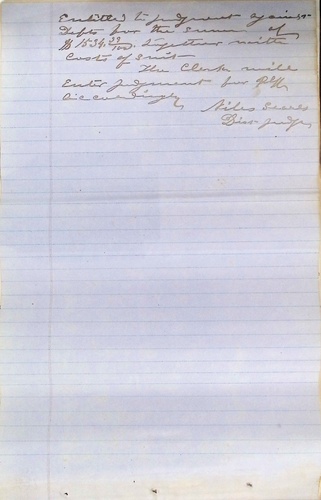 Entitled to judgment against
Defts for the sum of
$1534.33/100. together with
Costs of suit
The Clerk will
Enter judgment for Plff
accordingly
Niles Searls
Dist Judge